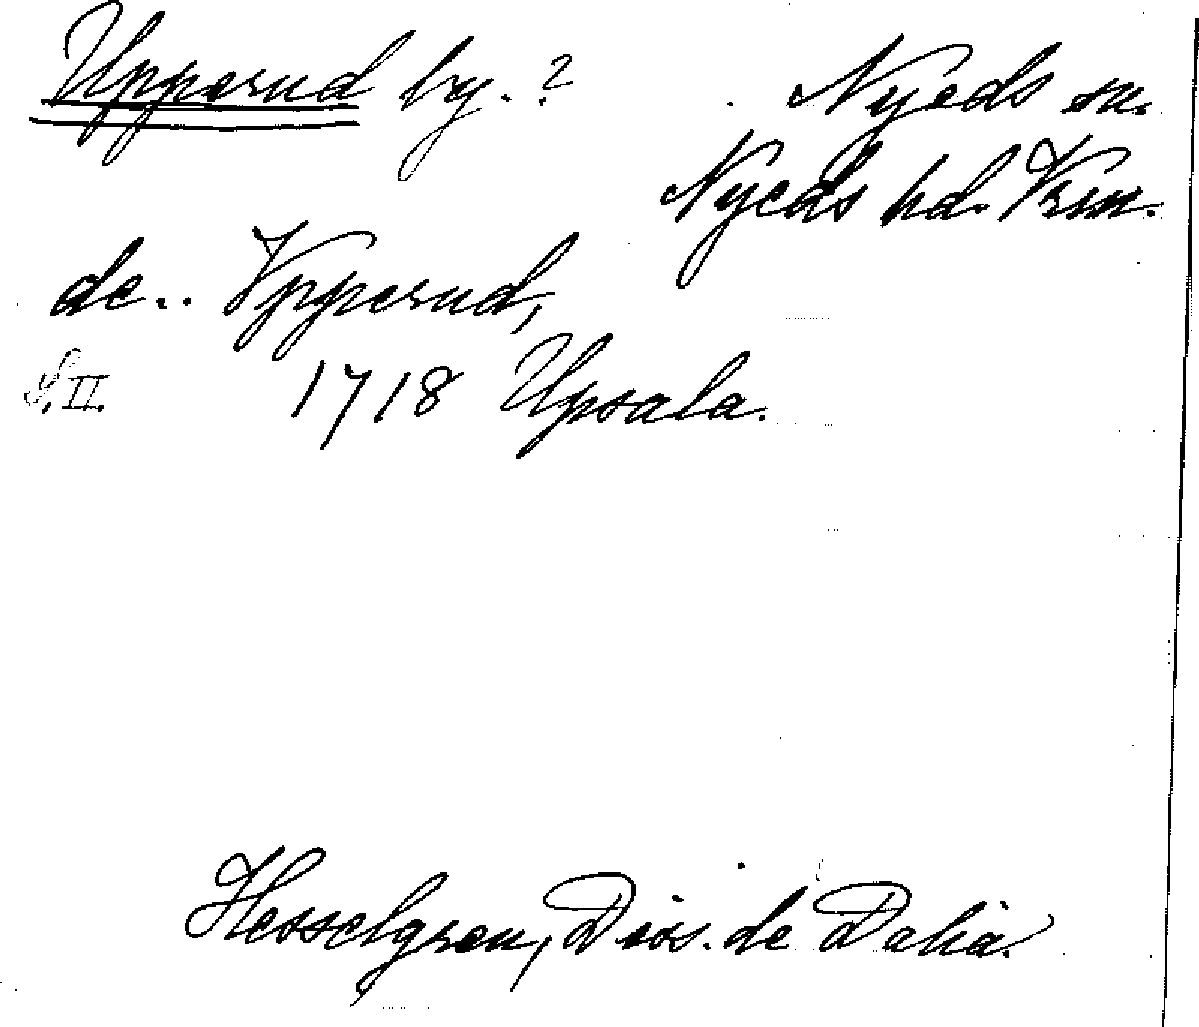 Upperud by. ? Nyeds sn.
Nyeds hd. Vrm.
de.. Ypperud,
S. II. 1718 Upsala.
Hesselgren, Diss. de Dalia.